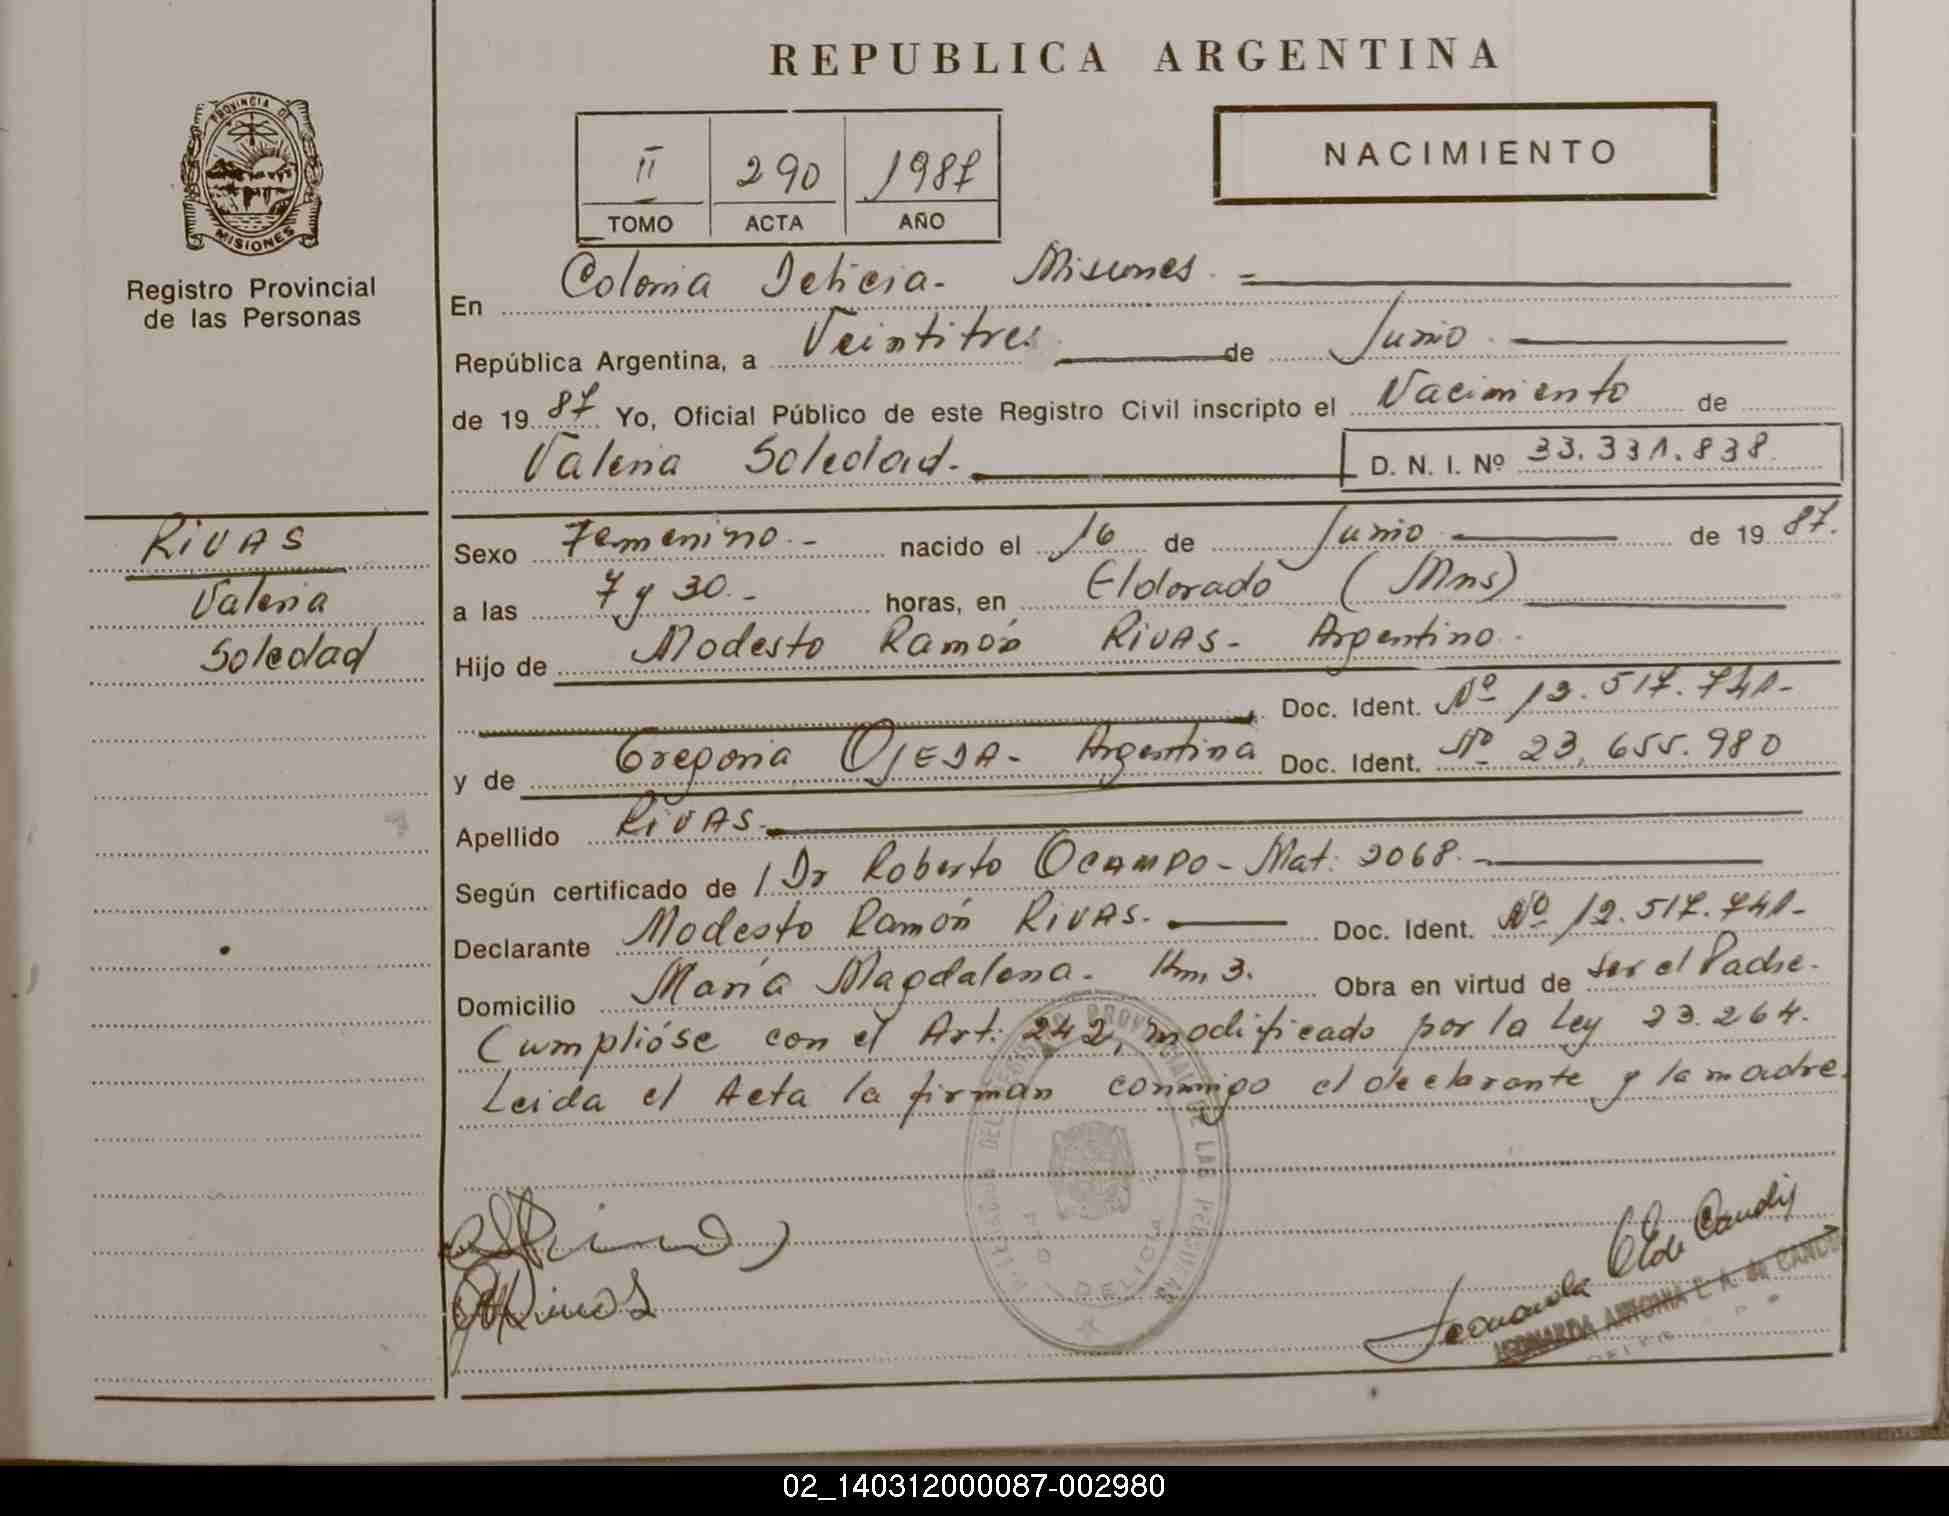 REPUBLICA ARGENTINA
PROVINCIA DE
MISIONES
Registro Provincial
de las Personas
II 290 1987
TOMO ACTA AÑO
NACIMIENTO
En Colonia Delicia - Misiones.
República Argentina, a Veintitres de Junio
de 19 87 Yo, Oficial Público de este Registro Civil inscripto el Nacimiento de
Valeria Soledad. D. N. I. Nº 33.331.838
RIVAS
Valeria
Soledad
Sexo Femenino.- nacido el 16 de Junio de 19 87.
a las 7 y 30.- horas, en Eldorado (Mns)
Hijo de Modesto Ramón RIVAS - Argentino.
Doc. Ident. Nº 12.517.741-
y de Gregoria OJEDA - Argentina Doc. Ident. Nº 23.655.980
Apellido RIVAS.
Según certificado de / Dr Roberto OCAMPO - Mat: 2068.-
Declarante Modesto Ramón RIVAS. Doc. Ident. Nº 12.517.741-
Domicilio María Magdalena - Km 3. Obra en virtud de ser el Padre.
Cumplióse con el Art: 242, modificado por la Ley 23.264.
Leida el Acta la firman conmigo el declarante y la madre.
DELICIA
LEONARDA ANTONIA E. A. de
02_140312000087-002980